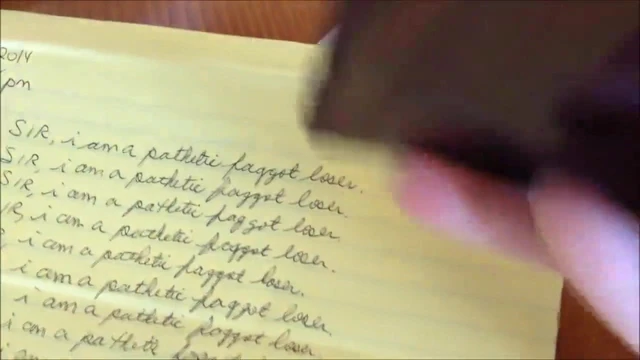 2014
pm
SIR, i am a pathetic faggot loser.
SIR, i am a pathetic faggot loser.
SIR, i am a pathetic faggot loser.
IR, i am a pathetic faggot loser.
, i am a pathetic faggot loser.
i am a pathetic faggot loser.
i am a pathetic faggot loser.
i am a pathetic
i am